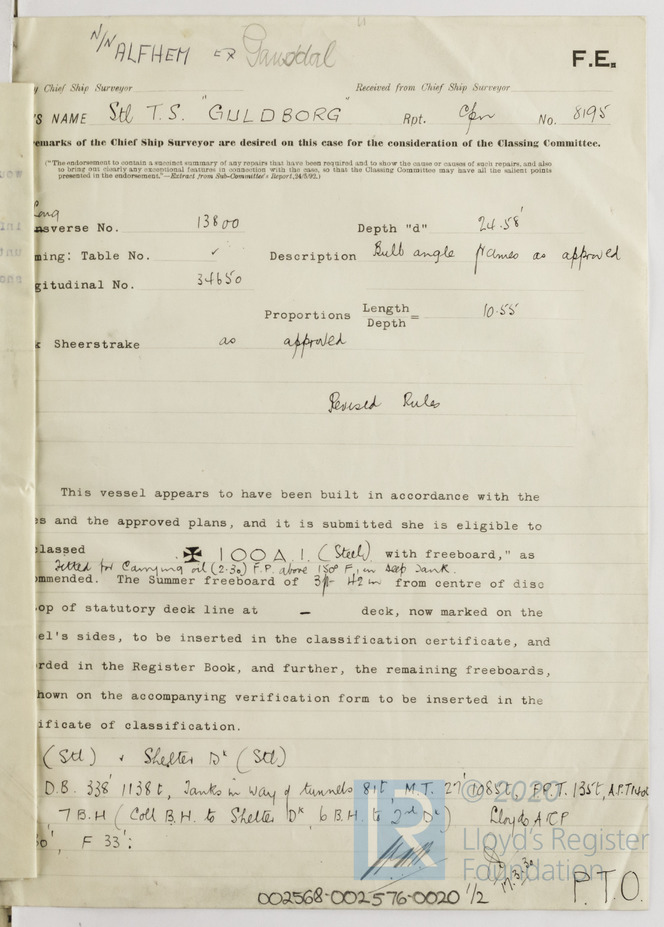 N/N ALFHEM ex Gausdal
F.E.
y Chief Ship Surveyor
Received from Chief Ship Surveyor
'S NAME Stl T.S. "GULDBORG" Rpt. Cpn No. 8195
emarks of the Chief Ship Surveyor are desired on this case for the consideration of the Classing Committee.
("The endorsement to contain a succinct summary of any repairs that have been required and to show the cause or causes of such repairs, and also
to bring out clearly any exceptional features in connection with the case, so that the Classing Committee may have all the salient points
presented in the endorsement."—Extract from Sub-Committee's Report, 24/5/92.)
Long
nsverse No. 13800 Depth "d" 24.58'
ming: Table No. ✓ Description Bulb angle frames as approved
gitudinal No. 34650
Proportions Length/Depth = 10.55
k Sheerstrake as approved
Revised Rules
This vessel appears to have been built in accordance with the
es and the approved plans, and it is submitted she is eligible to
classed ✠ 100A1. (Steel) with freeboard," as
Fitted for Carrying oil (2-30) F.P. above 150° F, in deep tank.
ommended. The Summer freeboard of 3ft- 4½ in from centre of disc
op of statutory deck line at – deck, now marked on the
el's sides, to be inserted in the classification certificate, and
rded in the Register Book, and further, the remaining freeboards,
hown on the accompanying verification form to be inserted in the
ificate of classification.
(Stl) & Shelter Dk (Stl)
D.B. 338' 1138t, Tanks in way of tunnels 81t M.T. 27' 1085t, F.P.T. 135t, A.P.T.
7 B.H (Coll B.H. to Shelter Dk 6 B.H. to 2nd Dk) Lloyds A & CP
0', F 33':
© 2020
Lloyd's Register
Foundation
17.3.30
P.T.O.
002568-002576-0020 1/2